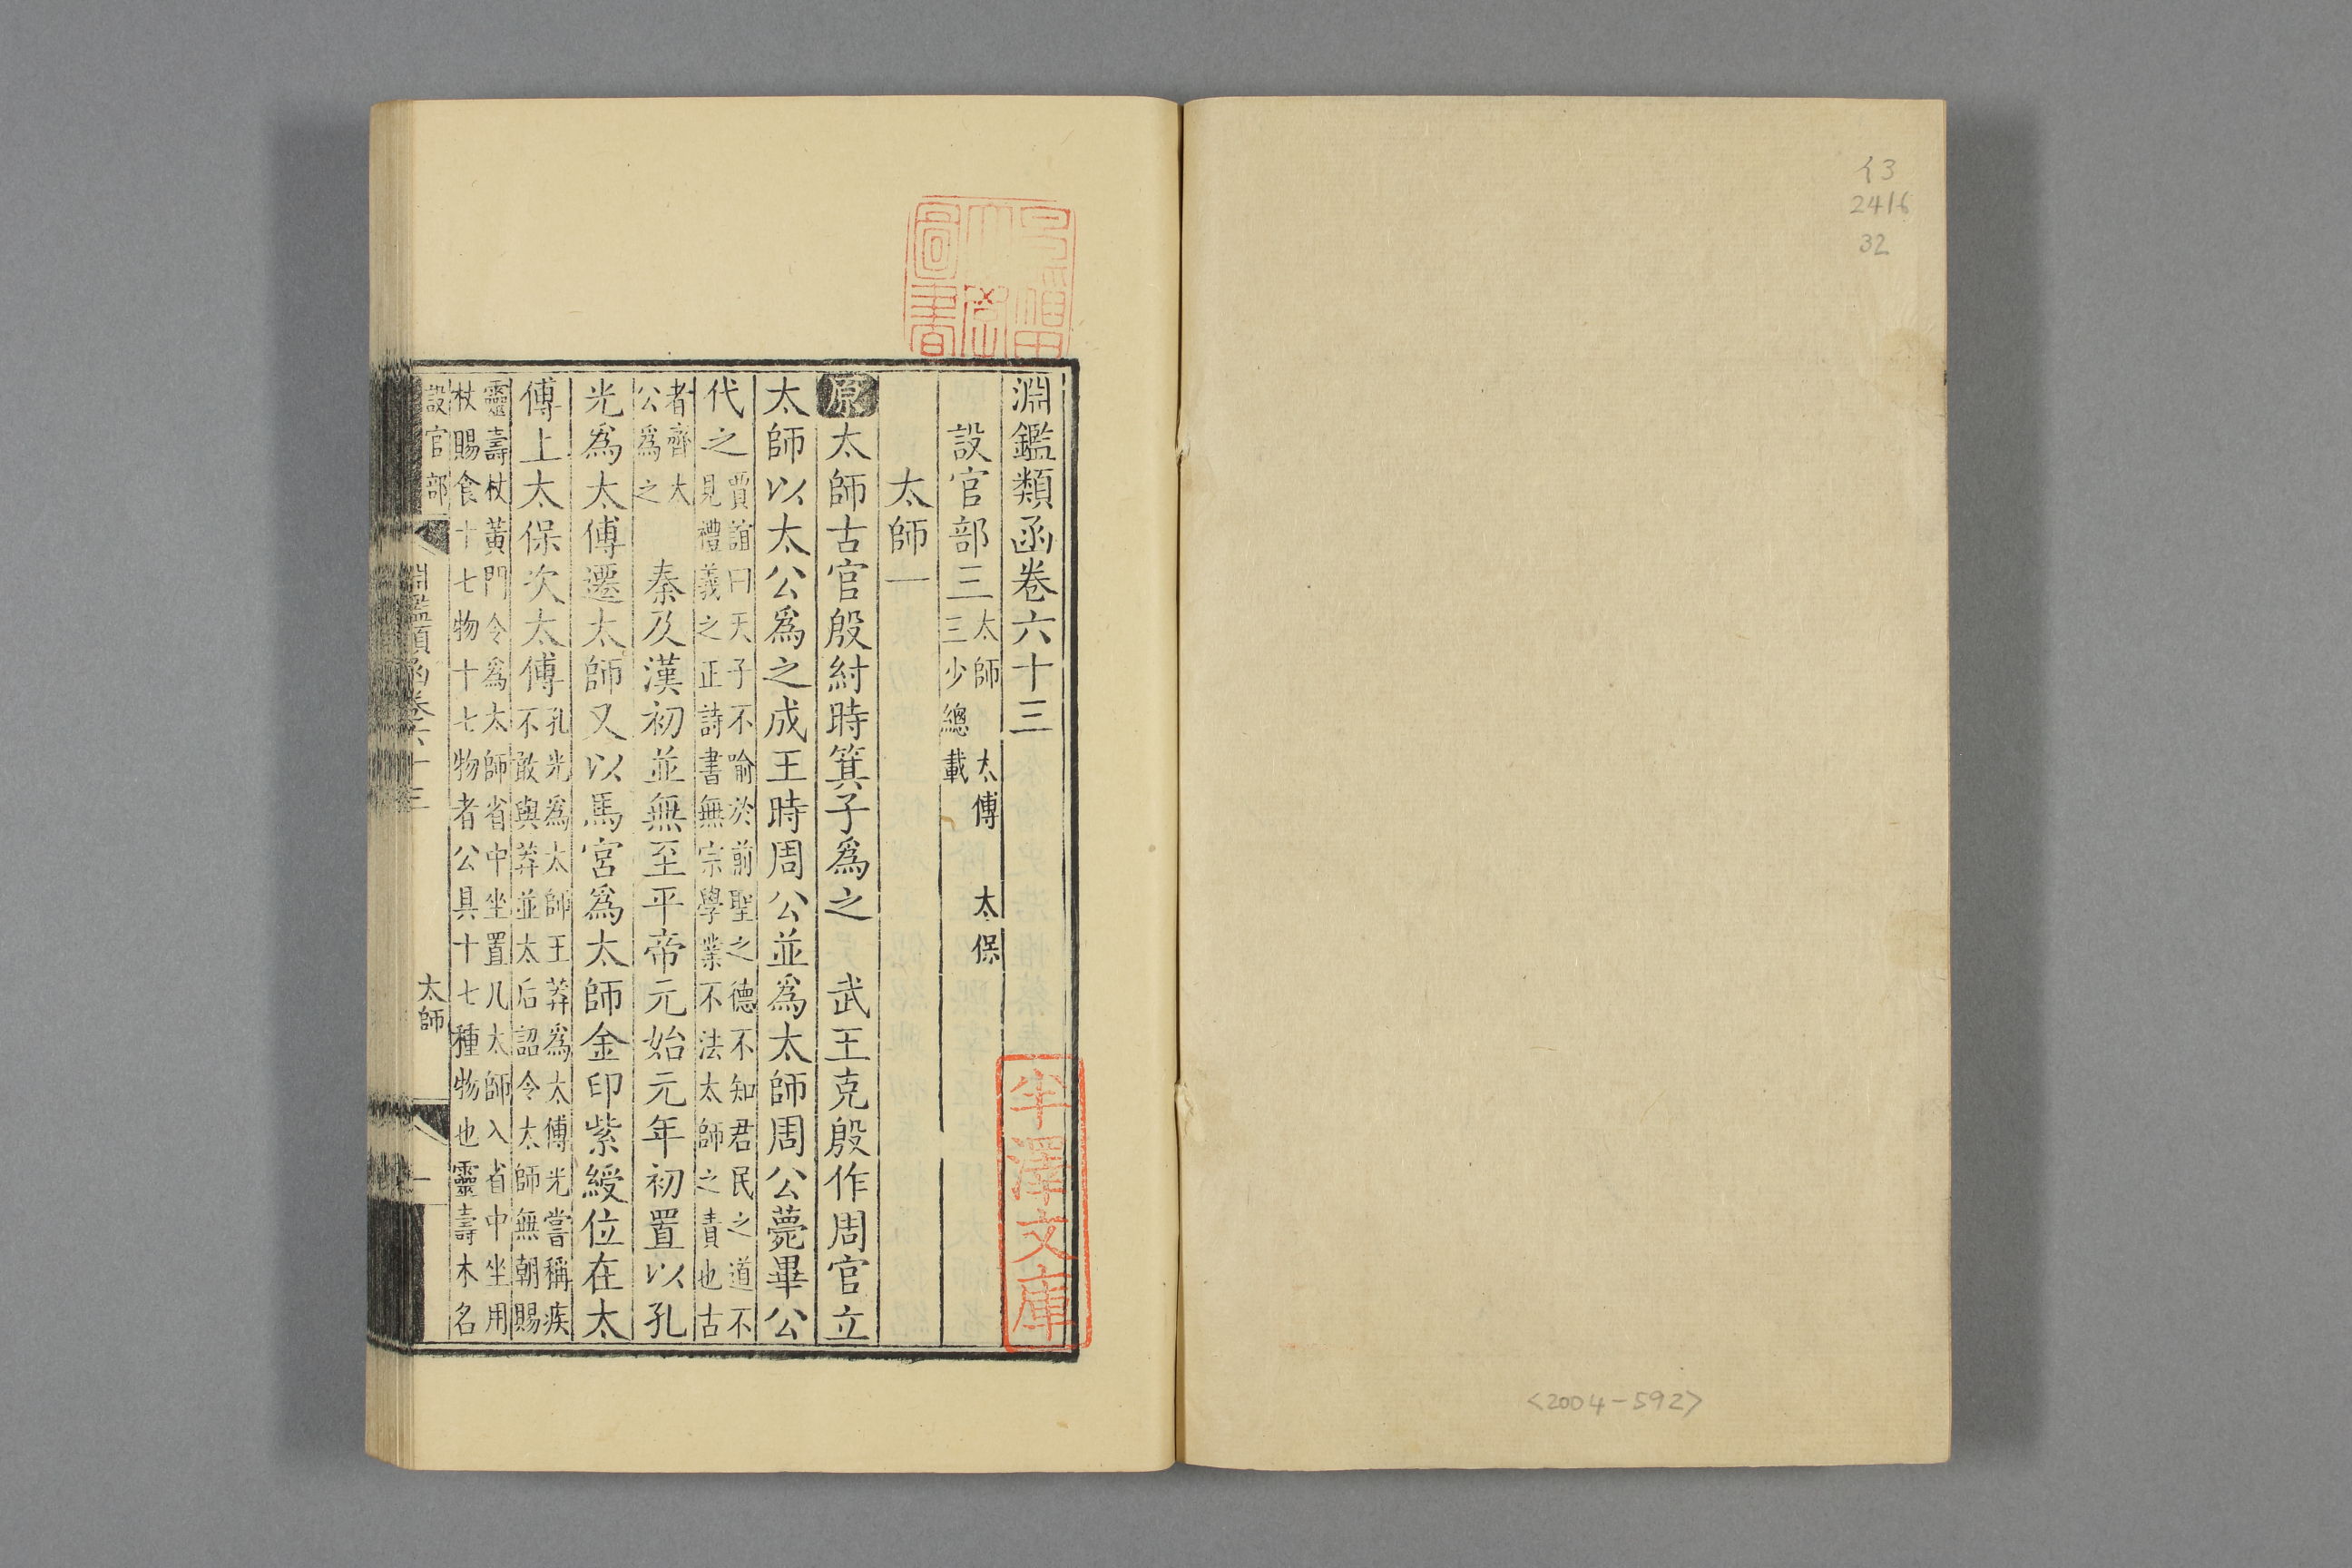 亻3
2416
32
<2004-592>
淵鑑類函卷六十三
設官部三太師 太傅 太保
三少總載
太師一
原太師古官殷紂時箕子爲之 武王克殷作周官立
太師以太公爲之成王時周公並爲太師周公薨畢公
代之賈誼曰天子不喻於前聖之德不知君民之道不
見禮義之正詩書無宗學業不法太師之責也古
者齊太
公爲之 秦及漢初並無至平帝元始元年初置以孔
光爲太傅遷太師又以馬宮爲太師金印紫綬位在太
傅上太保次太傅孔光爲太師王莽爲太傅光嘗稱疾
不敢與莽並太后詔令太師無朝賜
靈壽杖黃門令爲太師省中坐置几太師入省中坐用
杖賜食十七物十七物者公具十七種物也靈壽木名
設官部
淵鑑類函卷六十三
太師
一
半澤文庫
圖書